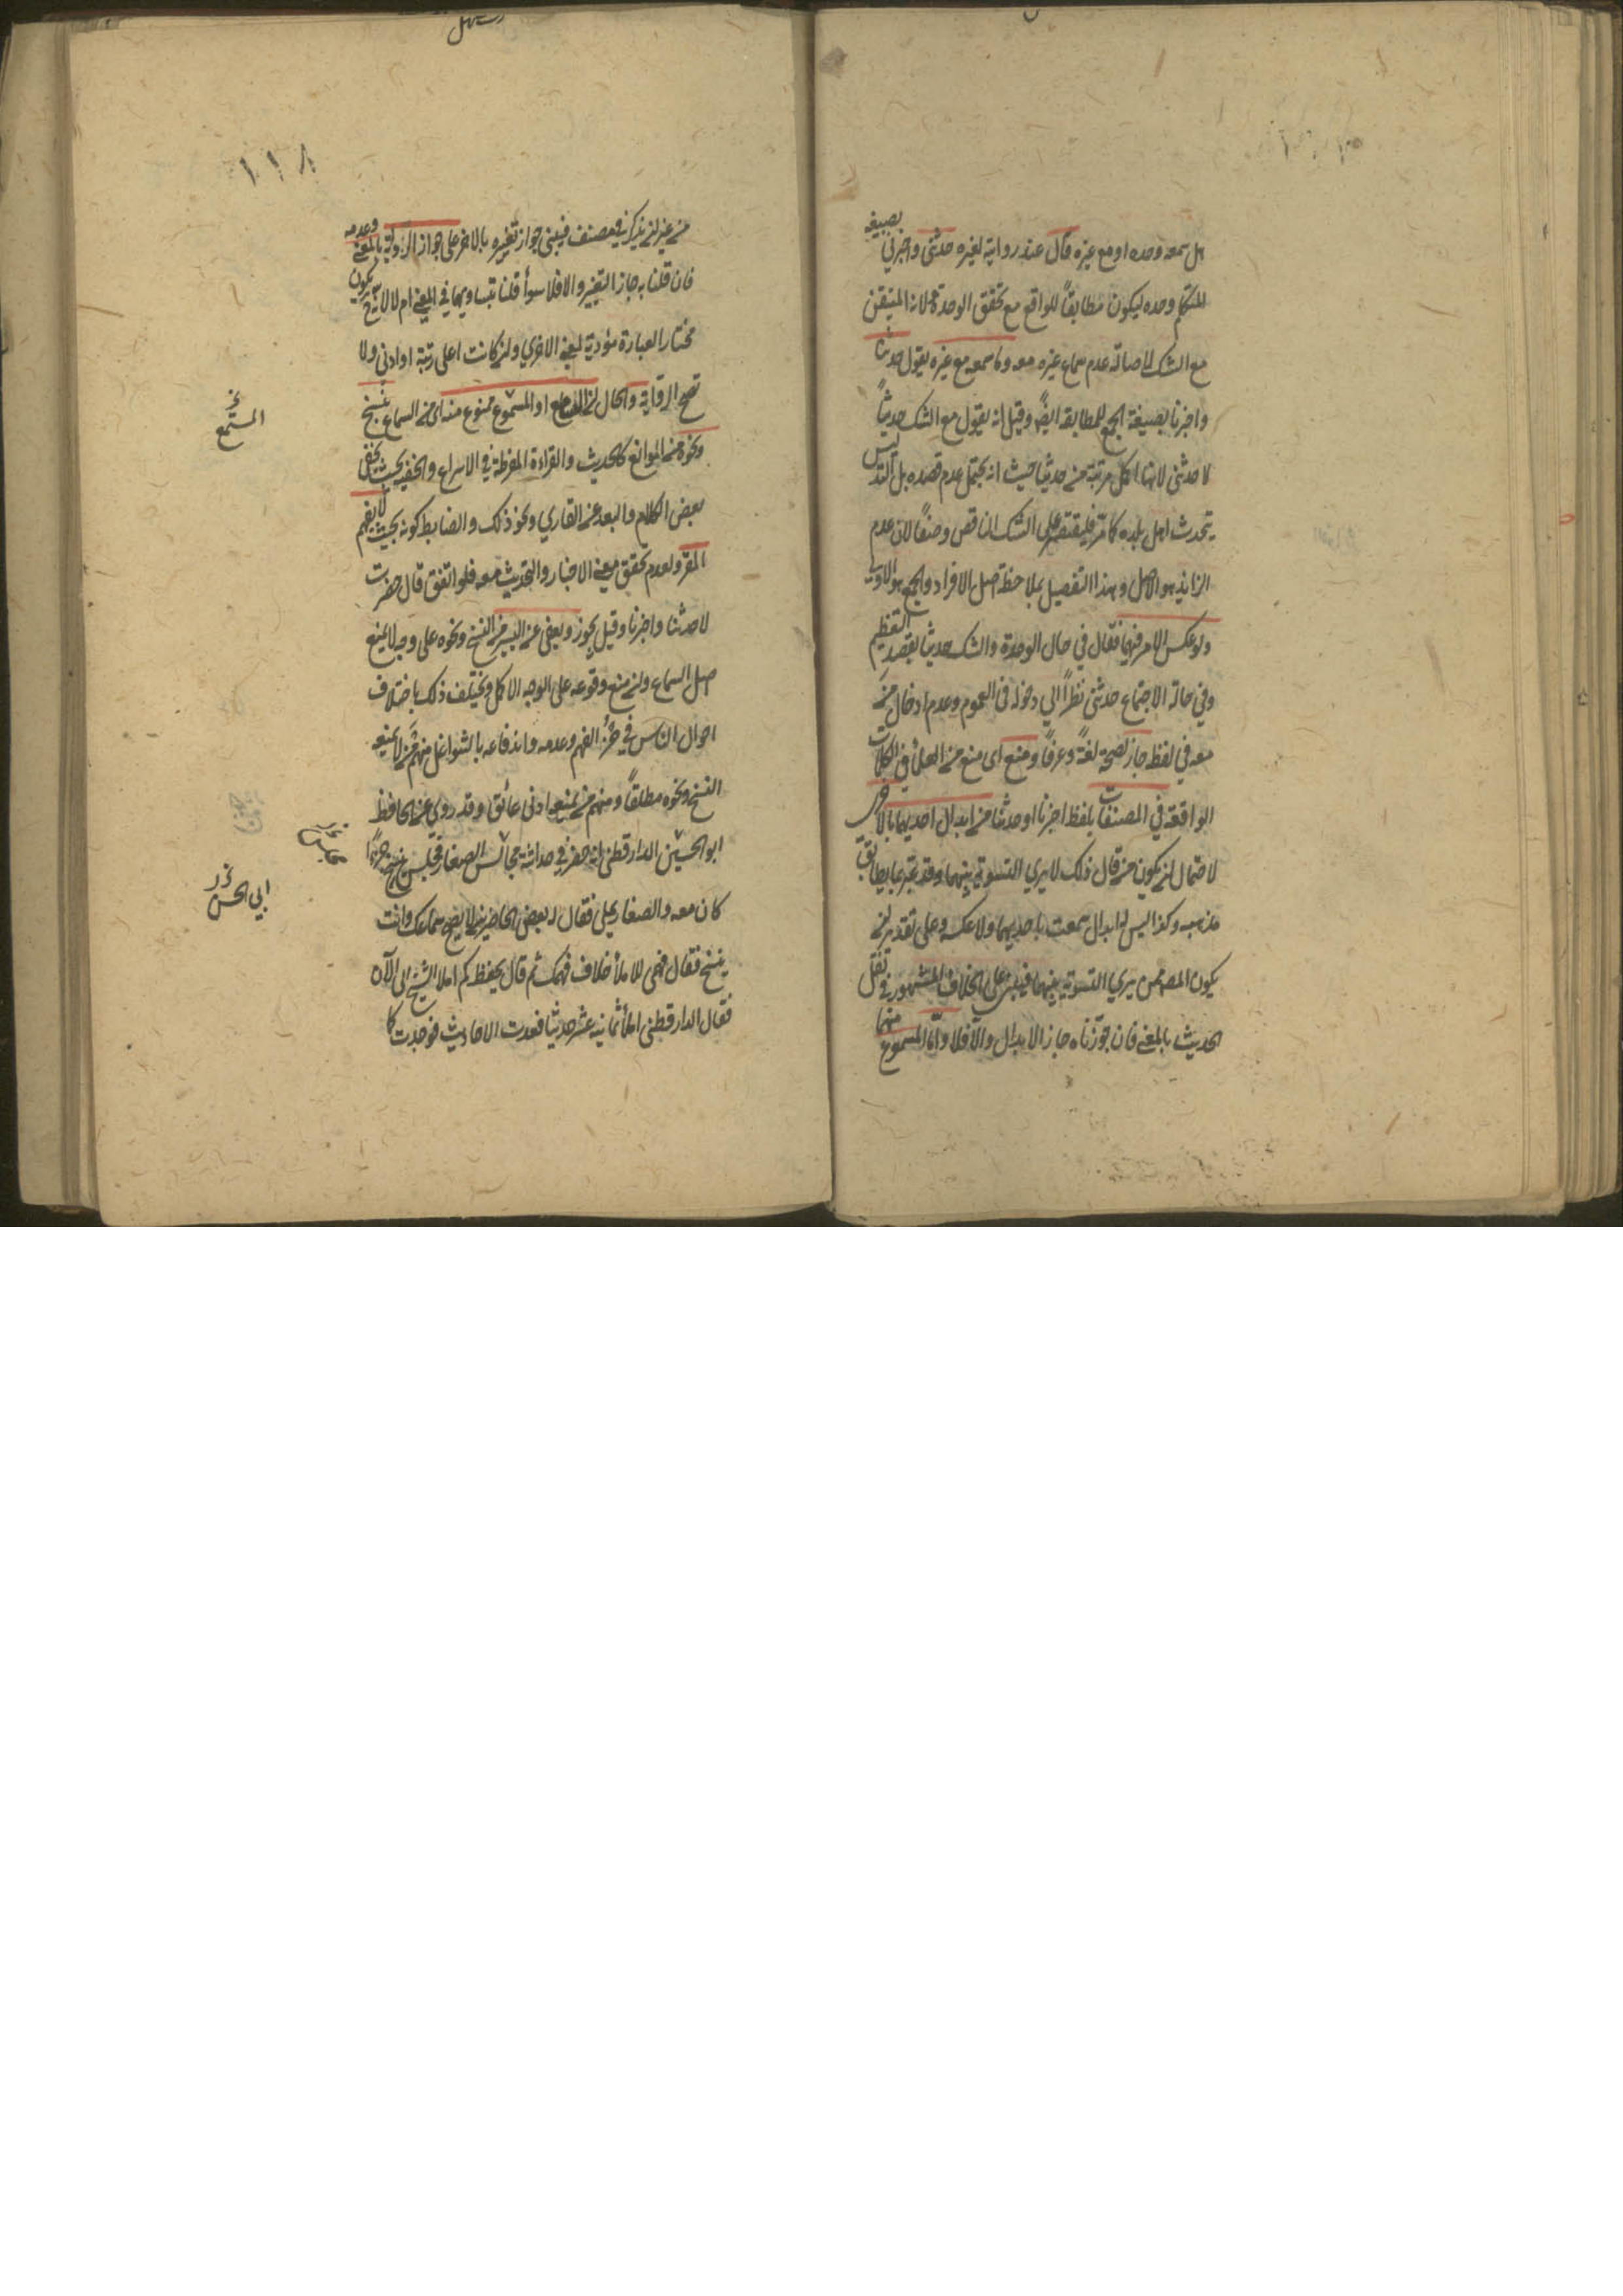 هل سمعه وحده او مع غيره قال عند روايته لغيره حدثني واخبرني بصيغة
المتكلم وحده ليكون مطابقاً للواقع مع تحقق الوحدة لانه المتيقن
مع الشك لاصالة عدم سماع غيره معه وما سمعه مع غيره يقول حدثنا
واخبرنا بصيغة الجمع للمطابقة ايضاً وقيل انه يقول مع الشك حدثنا
لا حدثني لانها اكمل مرتبة من حدثنا حيث انه يحتمل عدم قصده بل التدليس
بتحدث اهل بلده كما مر فليقتصر على الشك الناقص وصفاً لان عدم
الزائد هو الاصل وهذا التفصيل بملاحظة اصل الافراد والجمع هو الاولى
ولو عكس الامر فيهما فقال في حال الوحدة والشك حدثنا بقصد التعظيم
وفي حالة الاجتماع حدثني نظراً الى دخوله في العموم وعدم ادخال من
معه في لفظ جاز لصحته لغة وعرفاً ومنع اى منع من العلماء في الكلمات
الواقعة في المصنفات بلفظ اخبرنا او حدثنا من ابدال احديهما بالاخرى
لاحتمال ان يكون من قال ذلك لا يرى التسوية بينهما وقد عبر بما يطابق
مذهبه وكذا ليس له ابدال سمعت باحديهما ولا عكسه وعلى تقدير ان
يكون المصنف ممن يرى التسوية بينهما فيبنى على الخلاف المشهور في نقل
الحديث بالمعنى فان جوزناه جاز الابدال والا فلا واما المسموع منهما
١١٨
من غير ان يذكر في مصنف فيبنى جواز تغييره بالاخر على جواز الرواية بالمعنى وعدمه
فان قلنا به جاز التغيير والا فلا سواء قلنا بتساويهما في المعنى ام لا لانه ح يكون
مختار العبارة مؤدية لمعنى الاخرى وان كانت اعلى رتبة او ادنى ولا
تصح الرواية والحال ان السامع او المستمع ممنوع منه اى من السماع بنسخ
ونحوه من الموانع كالحديث والقراءة المفرطة في الاسراع والخفية بحيث يخفى
بعض الكلام والبعد عن القارى ونحو ذلك والضابط كونه بحيث لا يفهم
المقرو لعدم تحقق معنى الاخبار والتحديث معه فلو اتفق قال حضرت
لا حدثنا واخبرنا وقيل يجوز ويعفى عن اليسير من النسخ ونحوه على وجه لا يمنع
اصل السماع وان منع وقوعه على الوجه الاكمل ويختلف ذلك باختلاف
احوال الناس في الفهم وعدمه واندفاعه بالشواغل فمنهم من لا يمنعه
النسخ ونحوه مطلقاً ومنهم من يمنعه ادنى عائق وقد روى عن الحافظ
ابو الحسين الدارقطني انه حضر في حداثته مجالس الصفار فجلس ينسخ جزءاً
كان معه والصفار يملي فقال له بعض الحاضرين لا يصح سماعك وانت
ينسخ فقال فهمي للاملاء خلاف فهمك ثم قال يحفظ كم املا الشيخ الى الآن
فقال الدارقطني املاء ثمانية عشر حديثا فعدت الاحاديث فوجدت كما
المستمع
مجلس
ابي الحسن